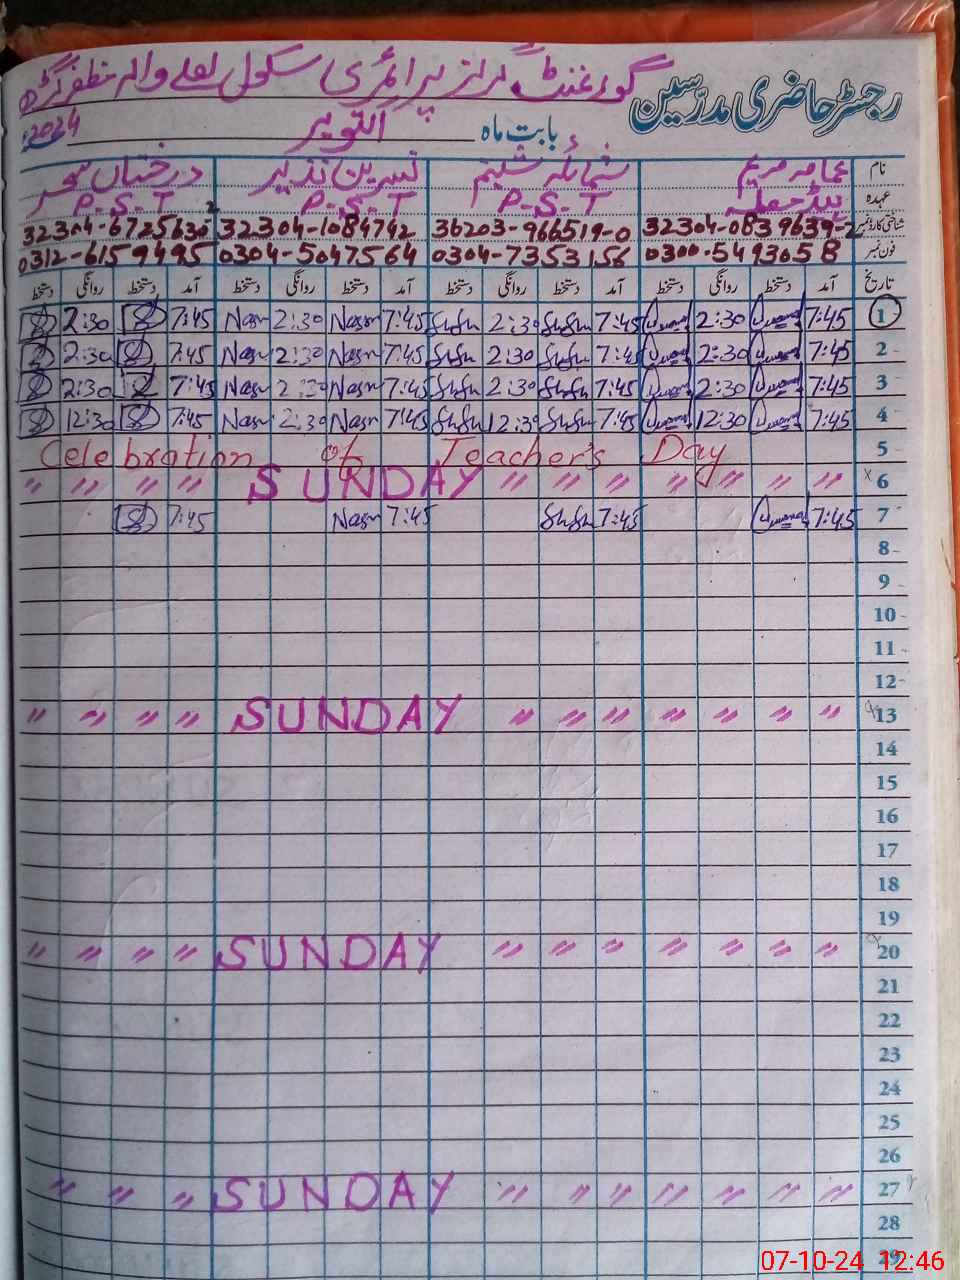 رجسٹر حاضری مدرسین گورنمنٹ گرلز پرائمری سکول لعلے والہ مظفرگڑھ
بابت ماہ اکتوبر 2024
نام مریم شمائلہ شبنم نسرین نذیر درخشاں سحر
عہدہ ہیڈ P.S.T P.S.T P.S.T
شناختی کارڈ نمبر 32304-0839639-2 36203-966519-0 32304-1084742 32304-6725630 2
فون نمبر 0300-5493058 0304-7353156 0304-5047564 0312-6159495
تاریخ آمد دستخط روانگی دستخط آمد دستخط روانگی دستخط آمد دستخط روانگی دستخط آمد دستخط روانگی دستخط
1 7:45 2:30 7:45 Shfu 2:30 Shfu 7:45 Nasr 2:30 Nasr 7:45 2:30
2 7:45 2:30 7:45 Shfu 2:30 Shfu 7:45 Nasr 2:30 Nasr 7:45 2:30
3 7:45 2:30 7:45 Shfu 2:30 Shfu 7:45 Nasr 2:30 Nasr 7:45 2:30
4 7:45 12:30 7:45 Shfu 12:30 Shfu 7:45 Nasr 2:30 Nasr 7:45 12:30
5 Celebration of Teacher's Day
6 SUNDAY
7 7:45 7:45 Shfu 7:45 Nasr 7:45
8
9
10
11
12
13 SUNDAY
14
15
16
17
18
19
20 SUNDAY
21
22
23
24
25
26
27 SUNDAY
28
29
07-10-24 12:46